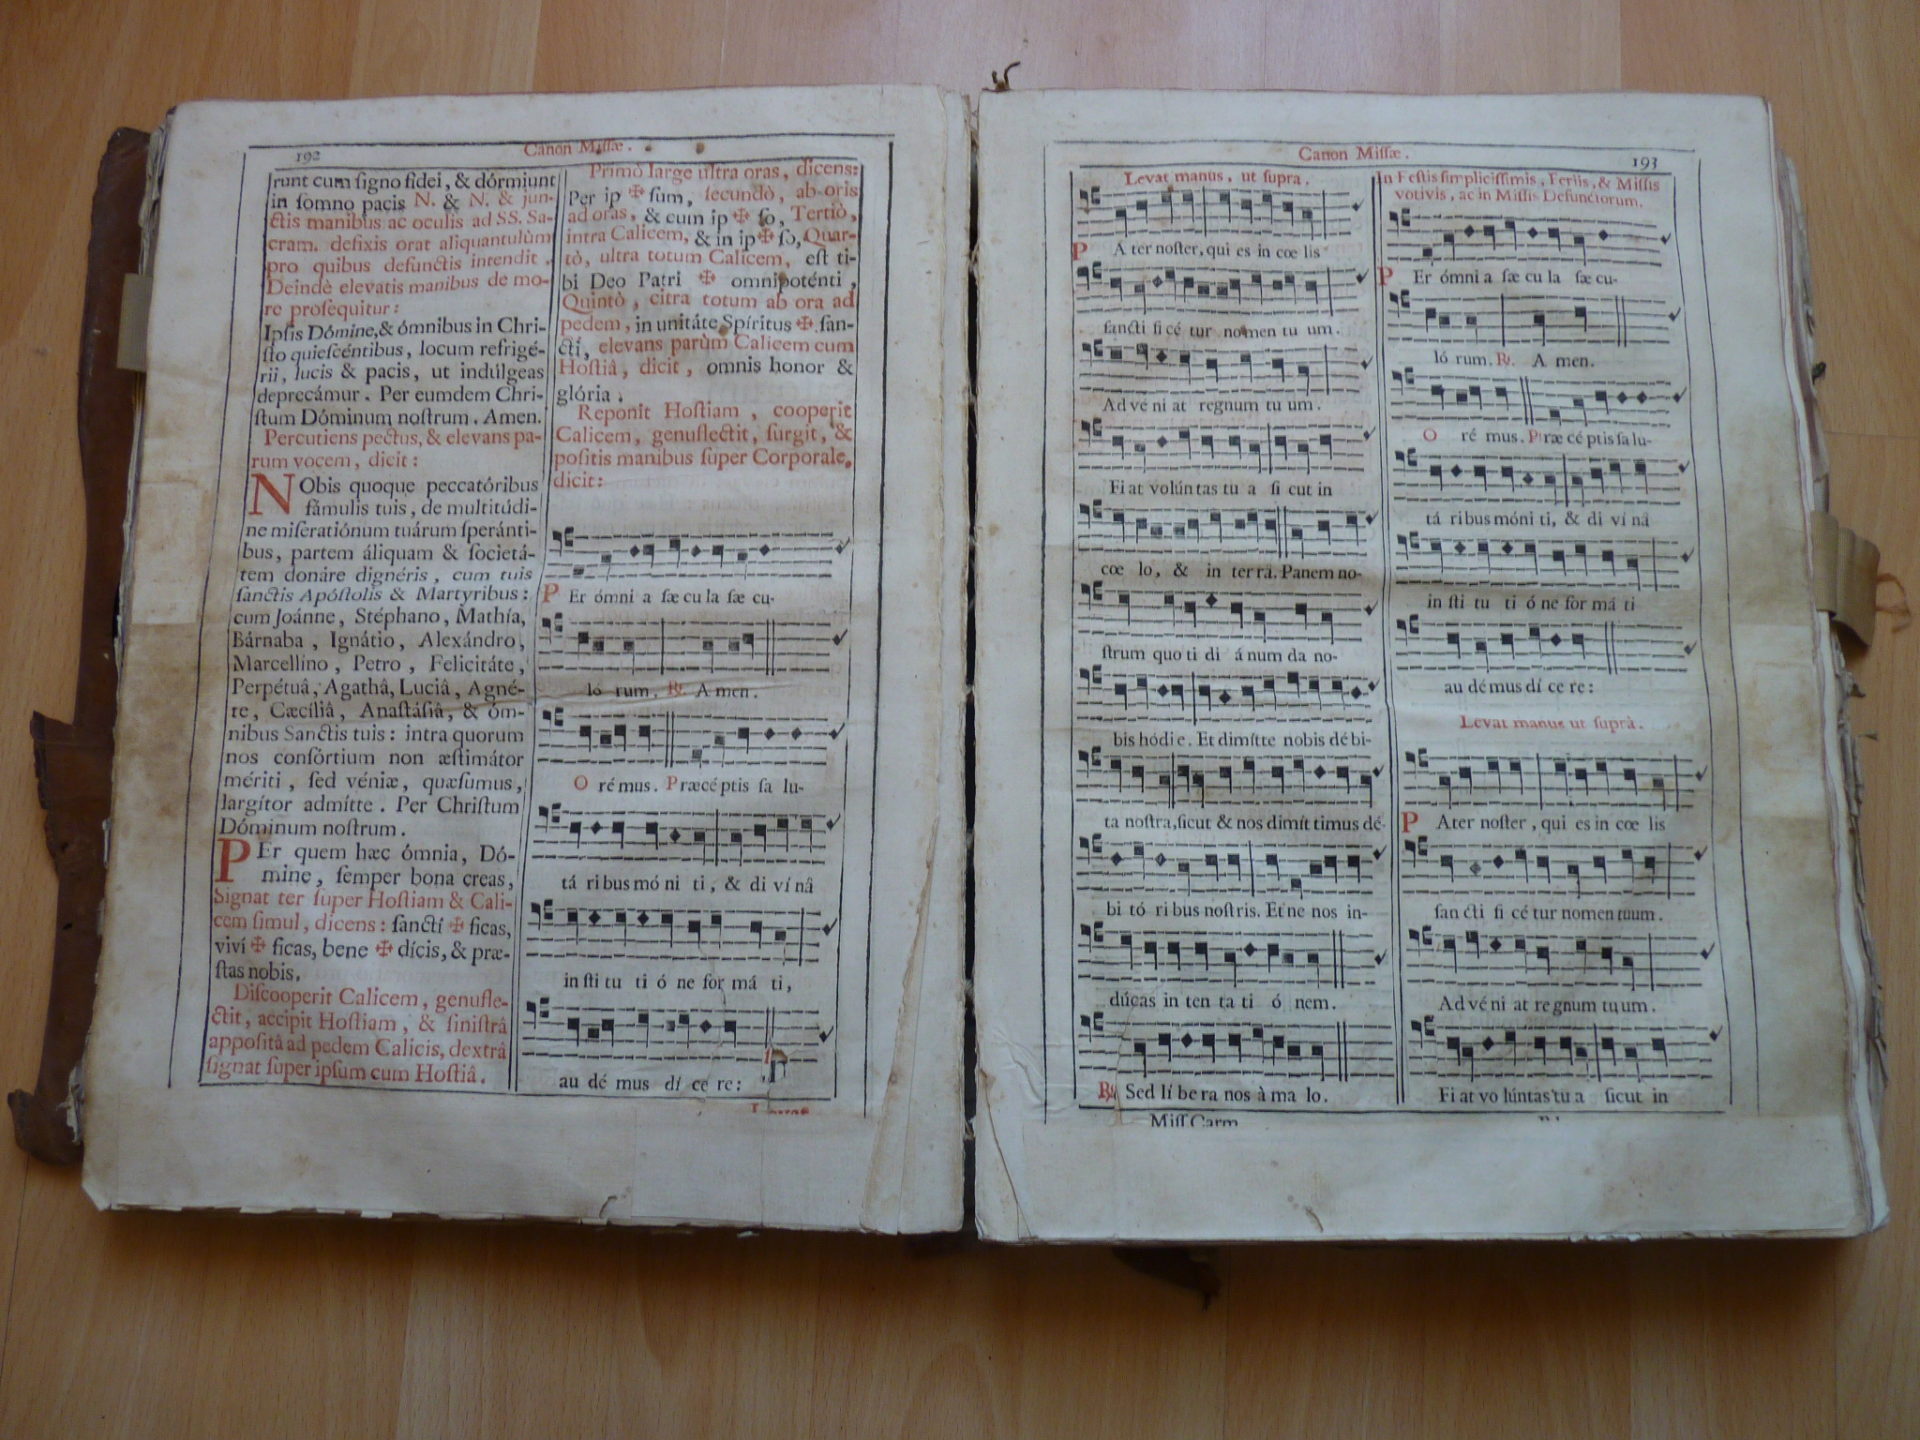 192
Canon Missæ.
runt cum signo fidei, & dórmiunt
in somno pacis N. & N. & jun-
ctis manibus ac oculis ad SS. Sa-
cram. defixis orat aliquantulùm
pro quibus defunctis intendit.
Deindè elevatis manibus de mo-
re prosequitur:
Ipsis Dómine, & ómnibus in Chri-
sto quiescéntibus, locum refrigé-
rii, lucis & pacis, ut indúlgeas
deprecámur. Per eumdem Chri-
stum Dóminum nostrum. Amen.
Percutiens pectus, & elevans pa-
rum vocem, dicit:
NObis quoque peccatóribus
fámulis tuis, de multitúdi-
ne miseratiónum tuárum speránti-
bus, partem áliquam & societá-
tem donáre dignéris, cum tuis
sanctis Apóstolis & Martyribus:
cum Joánne, Stéphano, Mathía,
Bárnaba, Ignátio, Alexándro,
Marcellíno, Petro, Felicitáte,
Perpétuâ, Agathâ, Luciâ, Agné-
te, Cæcíliâ, Anastásiâ, & óm-
nibus Sanctis tuis: intra quorum
nos consórtium non æstimátor
mériti, sed véniæ, quæsumus,
largítor admítte. Per Christum
Dóminum nostrum.
PEr quem hæc ómnia, Dó-
mine, semper bona creas,
Signat ter super Hostiam & Cali-
cem simul, dicens: sanctí ✠ ficas,
viví ✠ ficas, bene ✠ dícis, & præ-
stas nobis.
Discooperit Calicem, genufle-
ctit, accipit Hostiam, & sinistrâ
appositâ ad pedem Calicis, dextrâ
signat super ipsum cum Hostiâ.
Primò large ultra oras, dicens:
Per ip ✠ sum, secundò, ab oris
ad oras, & cum ip ✠ so, Tertiò,
intra Calicem, & in ip ✠ so, Quar-
tò, ultra totum Calicem, est ti-
bi Deo Patri ✠ omnipoténti,
Quintò, citra totum ab ora ad
pedem, in unitáte Spíritus ✠ san-
ctí, elevans parùm Calicem cum
Hostiâ, dicit, omnis honor &
glória.
Reponit Hostiam, cooperit
Calicem, genuflectit, surgit, &
positis manibus super Corporale,
dicit:
PEr ómni a sæ cu la sæ cu-
ló rum. ℟. A men.
O ré mus. Præcé ptis sa lu-
tá ri bus mó ni ti, & di ví nâ
in sti tu ti ó ne for má ti,
au dé mus dí ce re:
193
Canon Missæ.
Levat manus, ut supra.
PA ter noster, qui es in cœ lis
sancti fi cé tur nomen tu um.
Ad vé ni at regnum tu um.
Fi at volún tas tu a si cut in
cœ lo, & in ter râ. Panem no-
strum quo ti di á num da no-
bis hódi e. Et dimítte nobis dé bi-
ta nostra, sicut & nos dimít timus dé-
bi tó ri bus nostris. Et ne nos in-
dúcas in ten ta ti ó nem.
℟. Sed lí be ra nos à ma lo.
Miss Carm
In Festis simplicissimis, Feriis, & Missis
votivis, ac in Missis Defunctorum.
PEr ómni a sæ cu la sæ cu-
ló rum. ℟. A men.
O ré mus. Præ cé ptis sa lu-
tá ri bus móni ti, & di ví nâ
in sti tu ti ó ne for má ti
au dé mus dí ce re:
Levat manus ut suprà.
PAter noster, qui es in cœ lis
san cti fi cé tur nomen tuum.
Ad vé ni at regnum tuum.
Fi at vo lúntas tu a sicut in